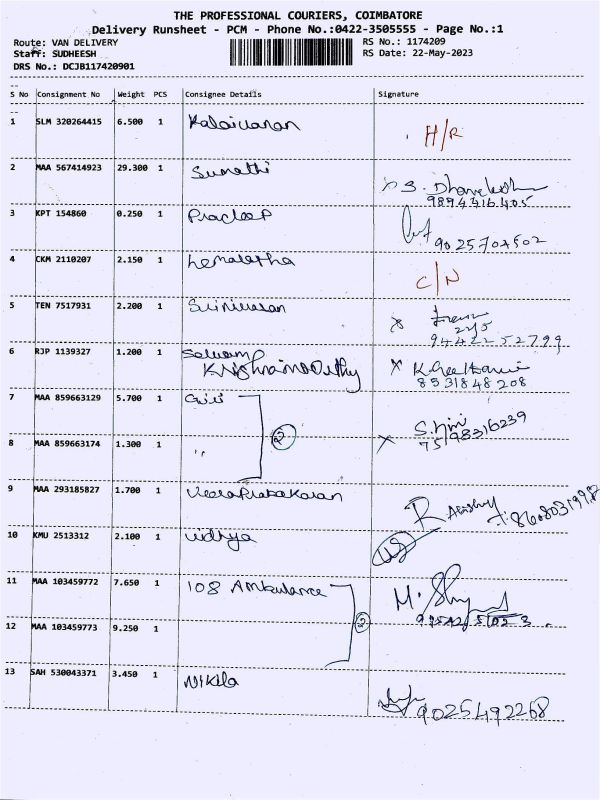 THE PROFESSIONAL COURIERS, COIMBATORE
Delivery Runsheet - PCM - Phone No.:0422-3505555 - Page No.:1
Route: VAN DELIVERY RS No.: 1174209
Staff: SUDHEESH RS Date: 22-May-2023
DRS No.: DCJB117420901
S No Consignment No Weight PCS Consignee Details Signature
1 SLM 320264415 6.500 1 Kalaivanan H/R
2 MAA 567414923 29.300 1 Sumathi
9894416405
3 KPT 154860 0.250 1 Pradeep
9025704502
4 CKM 2110207 2.150 1 Hemalatha C/N
5 TEN 7517931 2.200 1 Srinivasan
22/5
9442252799
6 RJP 1139327 1.200 1 Selvam
Krishnamoorthy
8531848208
7 MAA 859663129 5.700 1 Giri
2
7598316239
8 MAA 859663174 1.300 1 "
9 MAA 293185827 1.700 1 Veeraprabakaran
10 KMU 2513312 2.100 1 Vidhya
11 MAA 103459772 7.650 1 108 Ambulance
2
12 MAA 103459773 9.250 1
13 SAH 530043371 3.450 1 Nikila
9025492268